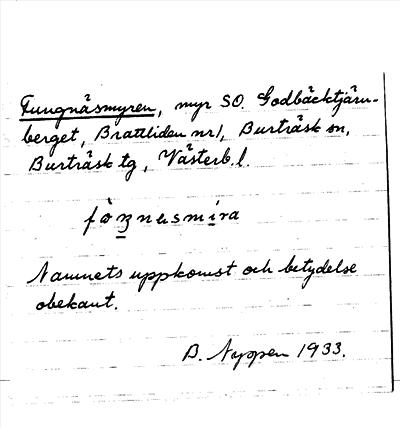 Fungnäsmyren, myr SO Godbäcktjärn-
berget, Brattliden nr 1, Burträsk sn,
Burträsk tg, Västerb. l.
Namnets uppkomst och betydelse
obekant.
B. Nyppen 1933.